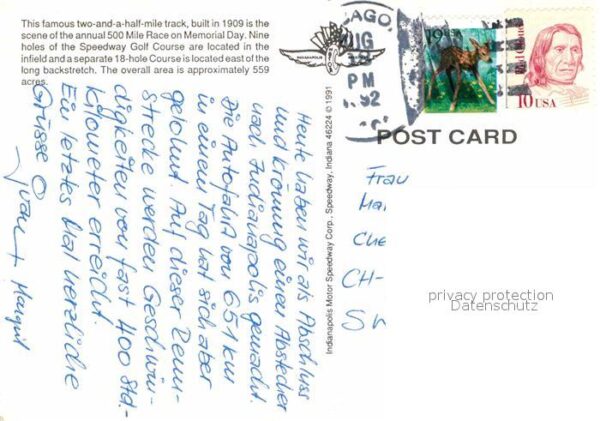 This famous two-and-a-half-mile track, built in 1909 is the
scene of the annual 500 Mile Race on Memorial Day. Nine
holes of the Speedway Golf Course are located in the
infield and a separate 18-hole Course is located east of the
long backstretch. The overall area is approximately 559
acres.
INDIANAPOLIS
CAGO,
UG
PM
92
19 USA
Red Cloud
10 USA
POST CARD
Indianapolis Motor Speedway Corp., Speedway, Indiana 46224 © 1991
Heute haben wir als Abschluss
und Krönung einen Abstecher
nach Indianapolis gemacht.
Die Autofahrt von 651 km
in einem Tag hat sich aber
gelohnt. Auf dieser Renn-
strecke werden Geschwin-
digkeiten von fast 400 Std.-
Kilometer erreicht.
Ein letztes Mal herzliche
Grüsse
Yvan + Margrit
Frau
Mar
Che
CH-
privacy protection
Datenschutz